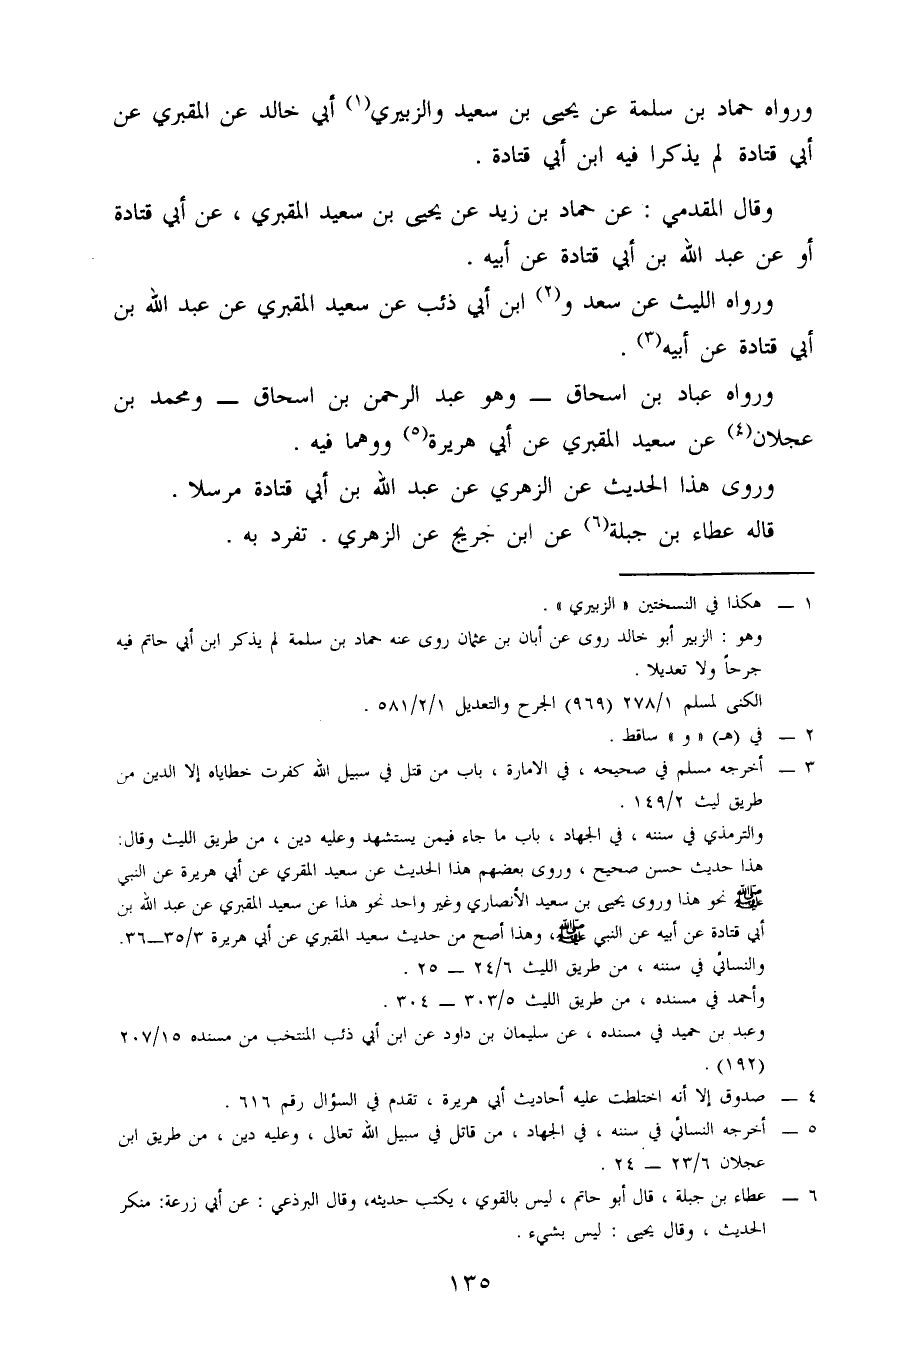 ورواه حماد بن سلمة عن يحيى بن سعيد والزبيري(١) أبي خالد عن المقبري عن
أبي قتادة لم يذكرا فيه ابن أبي قتادة .
وقال المقدمي : عن حماد بن زيد عن يحيى بن سعيد المقبري ، عن أبي قتادة
أو عن عبد الله بن أبي قتادة عن أبيه .
ورواه الليث عن سعد و(٢) ابن أبي ذئب عن سعيد المقبري عن عبد الله بن
أبي قتادة عن أبيه(٣) .
ورواه عباد بن اسحاق ــ وهو عبد الرحمن بن اسحاق ــ ومحمد بن
عجلان(٤) عن سعيد المقبري عن أبي هريرة(٥) ووهما فيه .
وروى هذا الحديث عن الزهري عن عبد الله بن أبي قتادة مرسلا .
قاله عطاء بن جبلة(٦) عن ابن جريج عن الزهري . تفرد به .
١ ــ هكذا في النسختين « الزبيري » .
وهو : الزبير أبو خالد روى عن أبان بن عثمان روى عنه حماد بن سلمة لم يذكر ابن أبي حاتم فيه
جرحاً ولا تعديلا .
الكنى لمسلم ٢٧٨/١ (٩٦٩) الجرح والتعديل ٥٨١/٢/١ .
٢ ــ في (هـ) « و » ساقط .
٣ ــ أخرجه مسلم في صحيحه ، في الامارة ، باب من قتل في سبيل الله كفرت خطاياه إلا الدين من
طريق ليث ١٤٩/٢ .
والترمذي في سننه ، في الجهاد ، باب ما جاء فيمن يستشهد وعليه دين ، من طريق الليث وقال:
هذا حديث حسن صحيح ، وروى بعضهم هذا الحديث عن سعيد المقري عن أبي هريرة عن النبي
ﷺ نحو هذا وروى يحيى بن سعيد الأنصاري وغير واحد نحو هذا عن سعيد المقبري عن عبد الله بن
أبي قتادة عن أبيه عن النبي ﷺ، وهذا أصح من حديث سعيد المقبري عن أبي هريرة ٣٥/٣ــ٣٦.
والنسائي في سننه ، من طريق الليث ٢٤/٦ ــ ٢٥ .
وأحمد في مسنده ، من طريق الليث ٣٠٣/٥ ــ ٣٠٤ .
وعبد بن حميد في مسنده ، عن سليمان بن داود عن ابن أبي ذئب المنتخب من مسنده ٢٠٧/١٥
(١٩٢) .
٤ ــ صدوق إلا أنه اختلطت عليه أحاديث أبي هريرة ، تقدم في السؤال رقم ٦١٦ .
٥ ــ أخرجه النسائي في سننه ، في الجهاد ، من قاتل في سبيل الله تعالى ، وعليه دين ، من طريق ابن
عجلان ٢٣/٦ ــ ٢٤ .
٦ ــ عطاء بن جبلة ، قال أبو حاتم ، ليس بالقوي ، يكتب حديثه، وقال البرذعي : عن أبي زرعة: منكر
الحديث ، وقال يحيى : ليس بشيء .
١٣٥